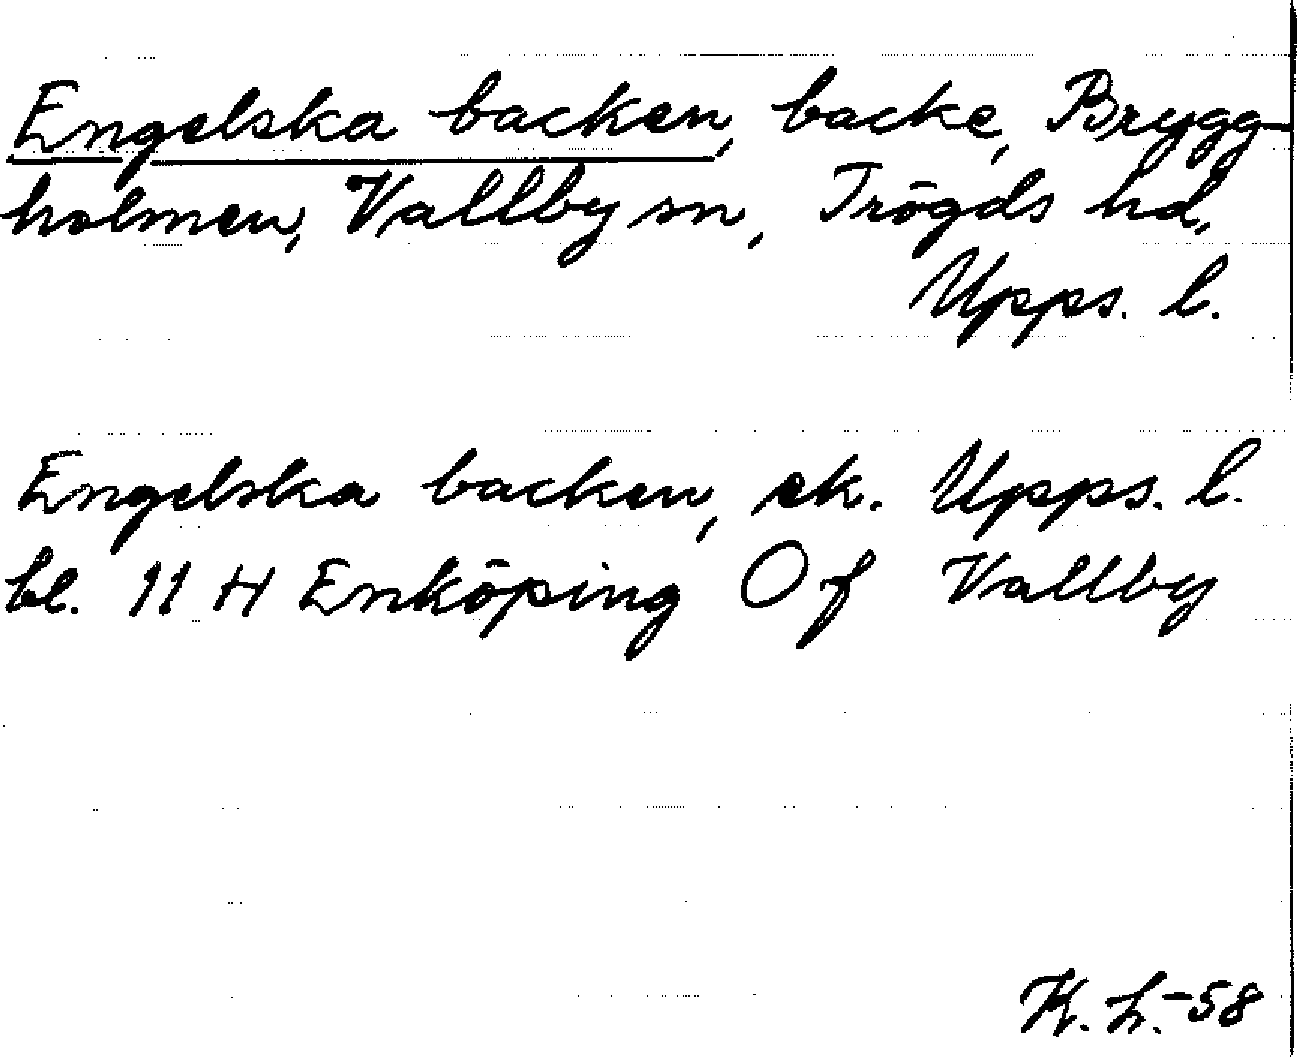 Engelska backen, backe, Brygg-
holmen, Vallby sn, Trögds hd,
Upps. l.
Engelska backen, ek. Upps. l.
bl. 11 H Enköping Of Vallby
K. L. -58